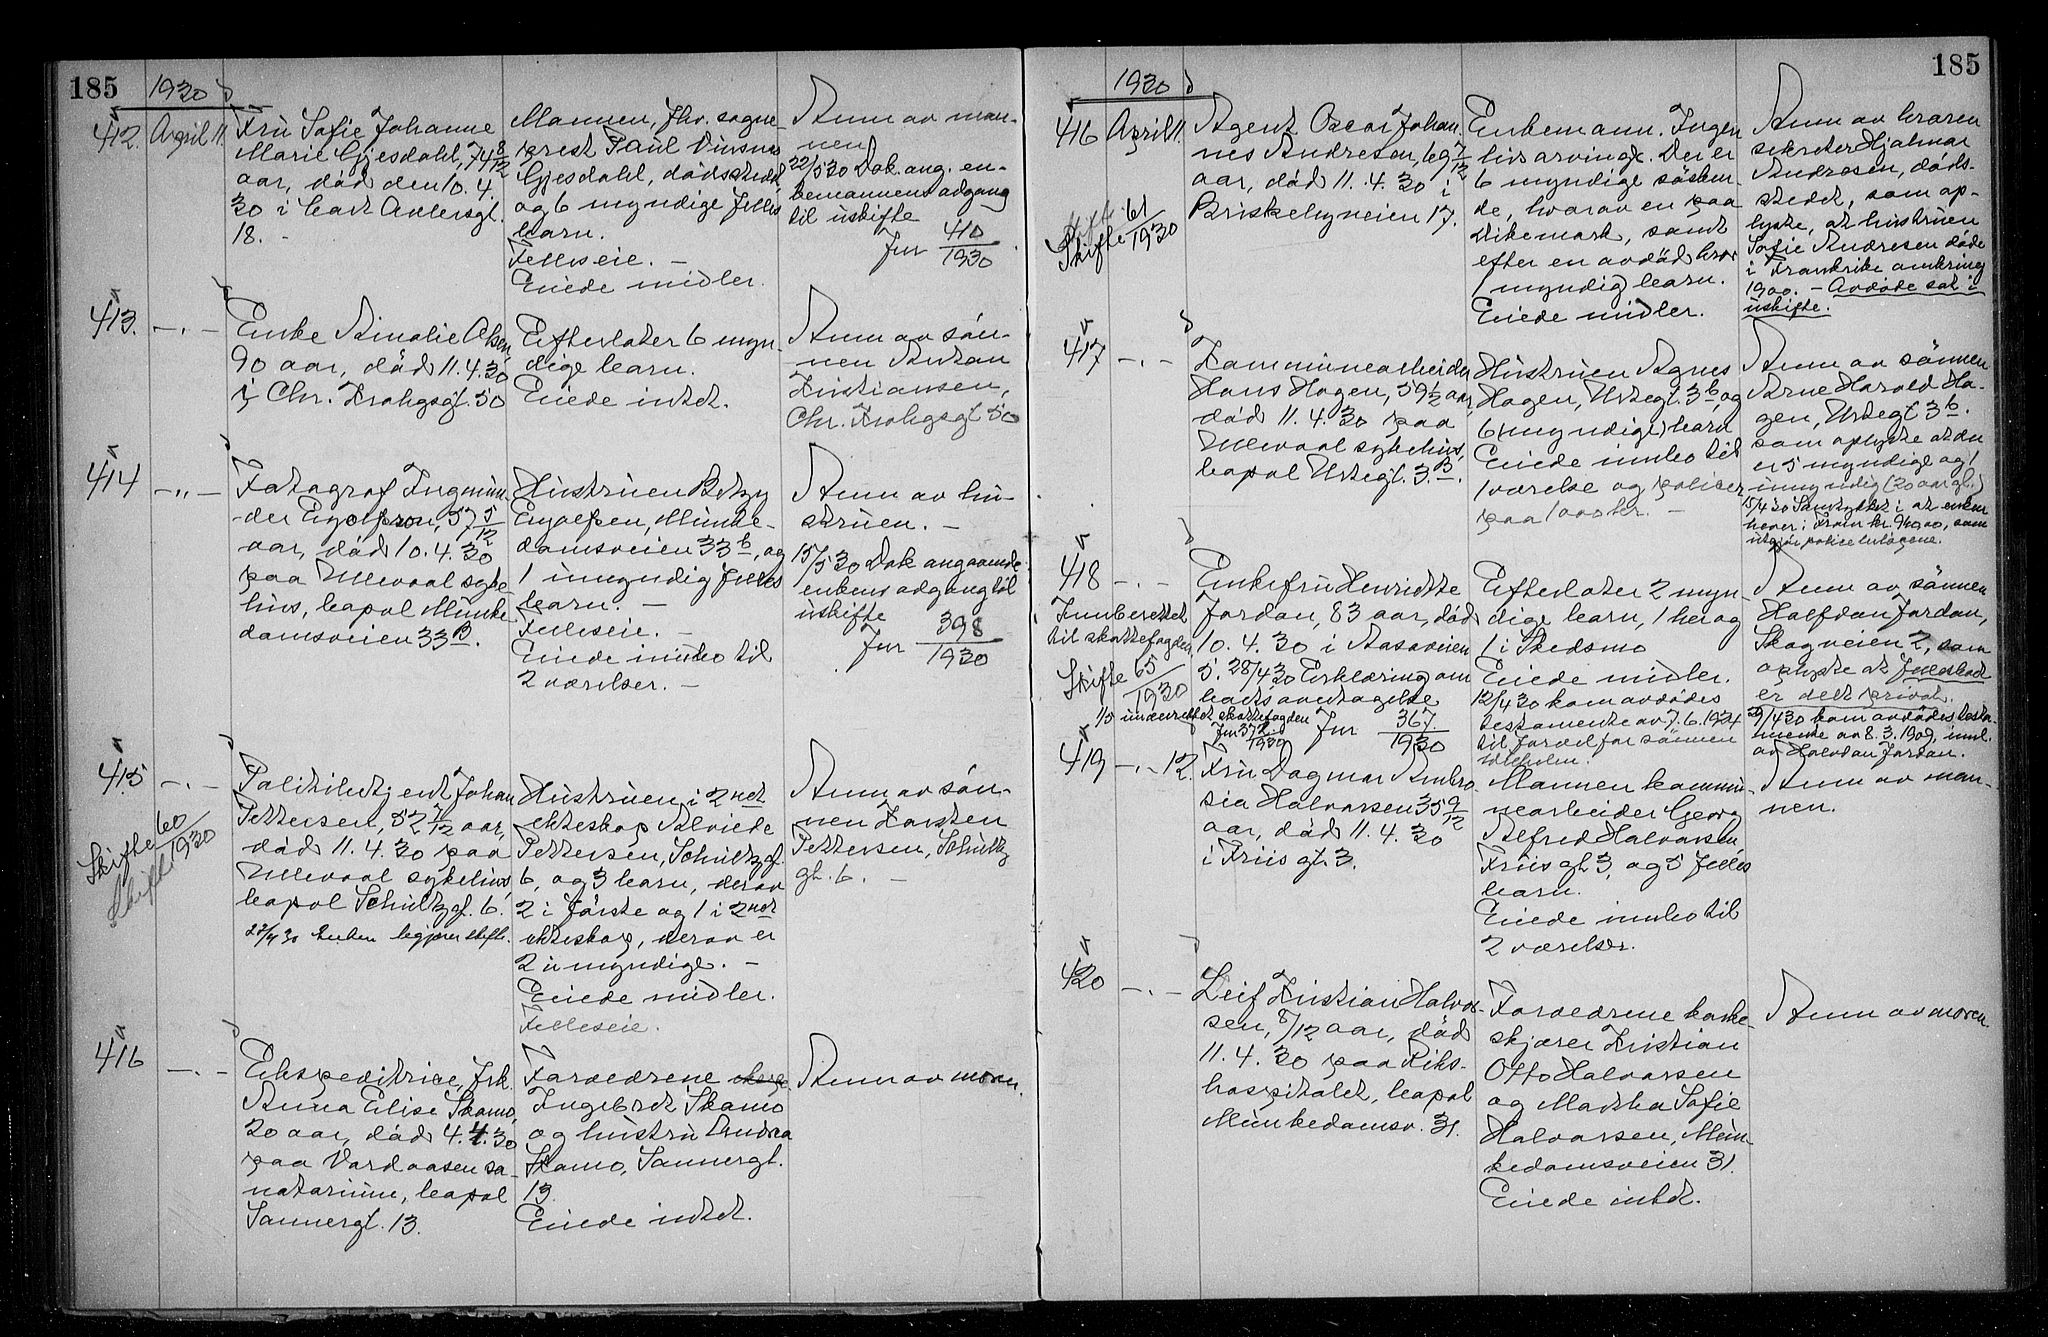 185
1930
412. April 11.
Fru Sofie Johanne
Marie Gjesdahl, 74 8/12
aar, död den 10. 4.
30 i Carl
18. -
Mannen, fhv. sogne-
prest Paul Vinsnes
Gjesdahl, dödsstedet
og 6 myndige felles
barn.
Felleseie. -
Eiede midler.
Anm av man-
nen
22/5 30 Dok. ang. en-
kemannens adgang
til uskifte
Jnr 410/1930
413. -.-
Enke Amalie Olsen,
90 aar, död 11.4.30
i Chr. Krohgsgt. 50
Efterlater 6 myn-
dige barn.
Eiede intet.
Anm av sön-
nen Anton
Kristiansen,
Chr. Krohgsgt 50
414 -„-
Fotograf Ingmun-
der Eyolfsen, 57 5/12
aar, död 10.4.30
paa Ullevaal syke-
hus, bopel Munke-
damsveien 33B.
Hustruen Betzy
Eyolfsen, Munke-
damsveien 33b, og
1 umyndig felles
barn. -
Felleseie. -
Eiede innbo til
2 værelser. -
Anm av hu-
struen. -
15/5 30 Dok angaaende
enkens adgang til
uskifte
Jnr 398/1930
415 -.-
Skifte 60/1930
Skifte
Politibetjent Johan
Pettersen, 52 7/12 aar,
död 11.4.30 paa
Ullevaal sykehus
bopel Schultzgt. 6.
22/4 30 Enken begjærer skifte.
Hustruen i 2net
ekteskap Alviede
Pettersen, Schultzgt.
6, og 3 barn, derav
2 i förste og 1 i 2net
ekteskap, derav er
2 umyndige. -
Eiede midler.
Felleseie.
Anm av sön-
nen Karsten
Pettersen, Schultz
gt. 6. -
416 -.-
Ekspeditrice, frk.
Anna Elise Skamo,
20 aar, död 4.4.30
paa Vardaasen sa-
natorium, bopel
Sannergt. 13.
Foreldrene
Ingebret Skamo
og hustru Andrea
Skamo, Sannergt.
13.
Eiede intet.
Anm av moren.
185
1930
416 April 11.
Skifte 61/1930
Skifte
Agent Oscar Johan-
nes Andresen, 69 7/12
aar, död 11.4.30 i
Briskebyveien 17.
Enkemann. Ingen
livsarving. Der er
6 myndige sösken-
de, hvorav en paa
Dikemark, samt
efter en avdöd bror
1 myndig barn.
Eiede midler.
Anm av broren
sekretær Hjalmar
Andresen, döds-
stedet, som op-
lyste, at hustruen
Sofie Andresen döde
i Frankrike omkring
1900. - Avdöde sat i
uskifte.
417 -.-
Kommunearbeider
Hans Hagen, 59 1/2 aar,
död 11.4.30 paa
Ullevaal sykehus,
bopel Urtegt. 3B.
Hustruen Agnes
Hagen, Urtegt. 3b, og
6 (myndige) barn
Eiede innbo til
1 værelse og poliser
paa 1000 kr. -
Anm av sönnen
Arne Harald Ha-
gen, Urtegt 3b.
som oplyste at der
er 5 myndige og 1
umyndig (20 aar gl.)
15/4 30 Samtykket i at enken
hever i Fram kr. 940,00, som
utgjör policebelöpene.
418 -.-
Innberettet
til skattefogden
Skifte 65/1930
Enkefru Henriette
Jordan, 83 aar, död
10.4.30 i Aasaveien
5. 28/4 30 Erklæring om
boets overtagelse
1/5 underrettet skattefogden
Jnr 372/1930
Jnr 367/1930
Efterlater 2 myn-
dige barn, 1 her og
1 i Skedsmo
Eiede midler.
12/4 30 kom avdödes
testamente av 7.6.1924
til fordel for sönnen
Wilhelm.
Anm av sönnen
Halfdan Jordan,
Skogveien 2, som
oplyste at fellesbod
er delt privat.
29/4 30 kom avdödes testa-
mente av 8.3.1909, innl.
av Halvdan Jordan.
419 -.- 12.
Fru Dagmar Ambro-
sia Halvorsen 35 9/12
aar, död 11.4.30
i Friisgt. 3.
Mannen kommu-
nearbeider Georg
Alfred Halvorsen,
Friisgt 3, og 5 felles
barn.
Eiede innbo til
2 værelser.
Anm av man-
nen.
420 -.-
Leif Kristian Halvor-
sen, 8/12 aar, död
11.4.30 paa Riks-
hospitalet, bopel
Munkedamsv. 31.
Foreldrene korke-
skjærer Kristian
Otto Halvorsen
og Martha Sofie
Halvorsen, Mun-
kedamsveien 31.
Eiede intet.
Anm av moren.